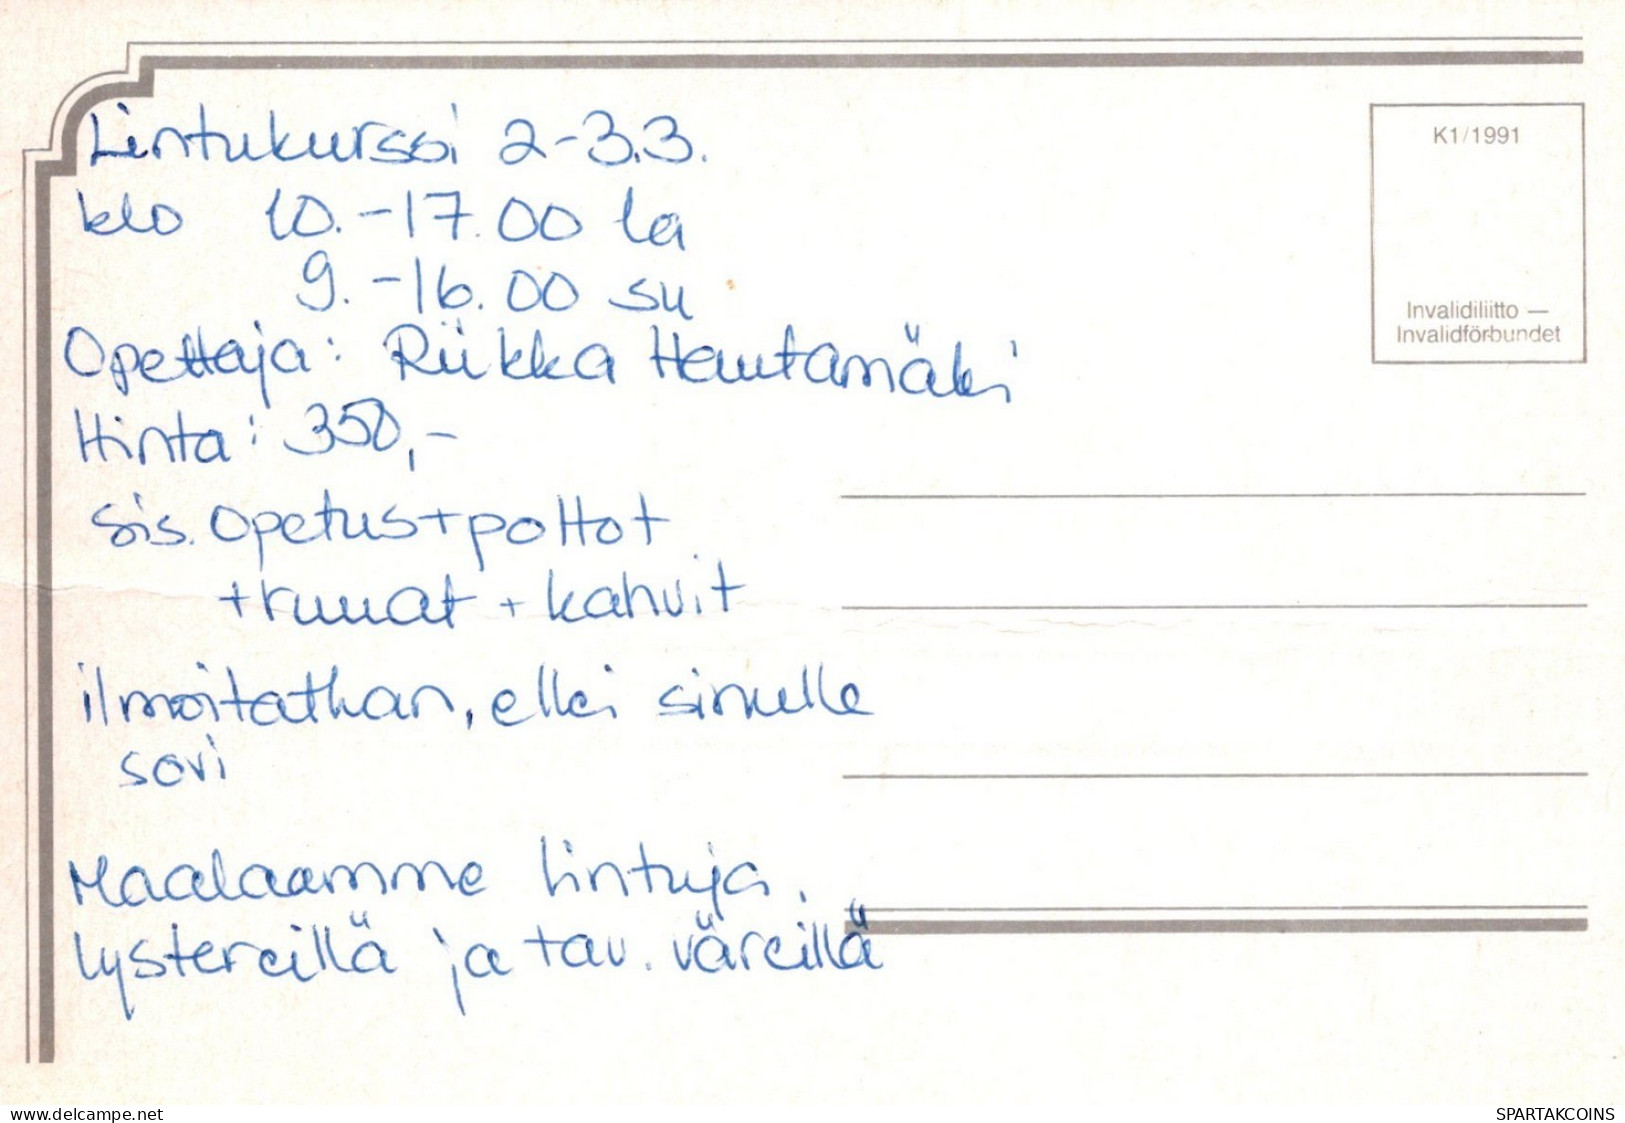 Lintukurssi 2-3.3.
klo 10.-17.00 la
9.-16.00 su
Opettaja: Riikka Hautamäki
Hinta: 350,-
sis. opetus+poltot
+ruuat + kahvit
ilmoitathan, ellei sinulle
sovi
Maalaamme lintuja.
lystereillä ja tav. väreillä
K1/1991
Invalidiliitto —
Invalidförbundet
www.delcampe.net
SPARTAKCOINS